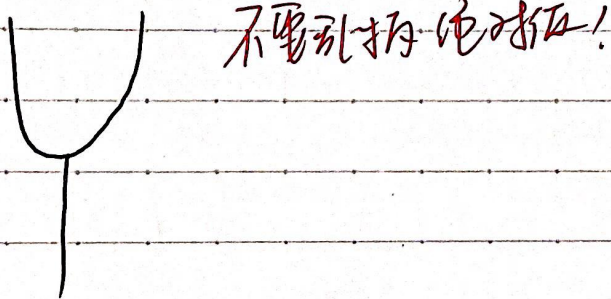 不要乱拆绝对值!